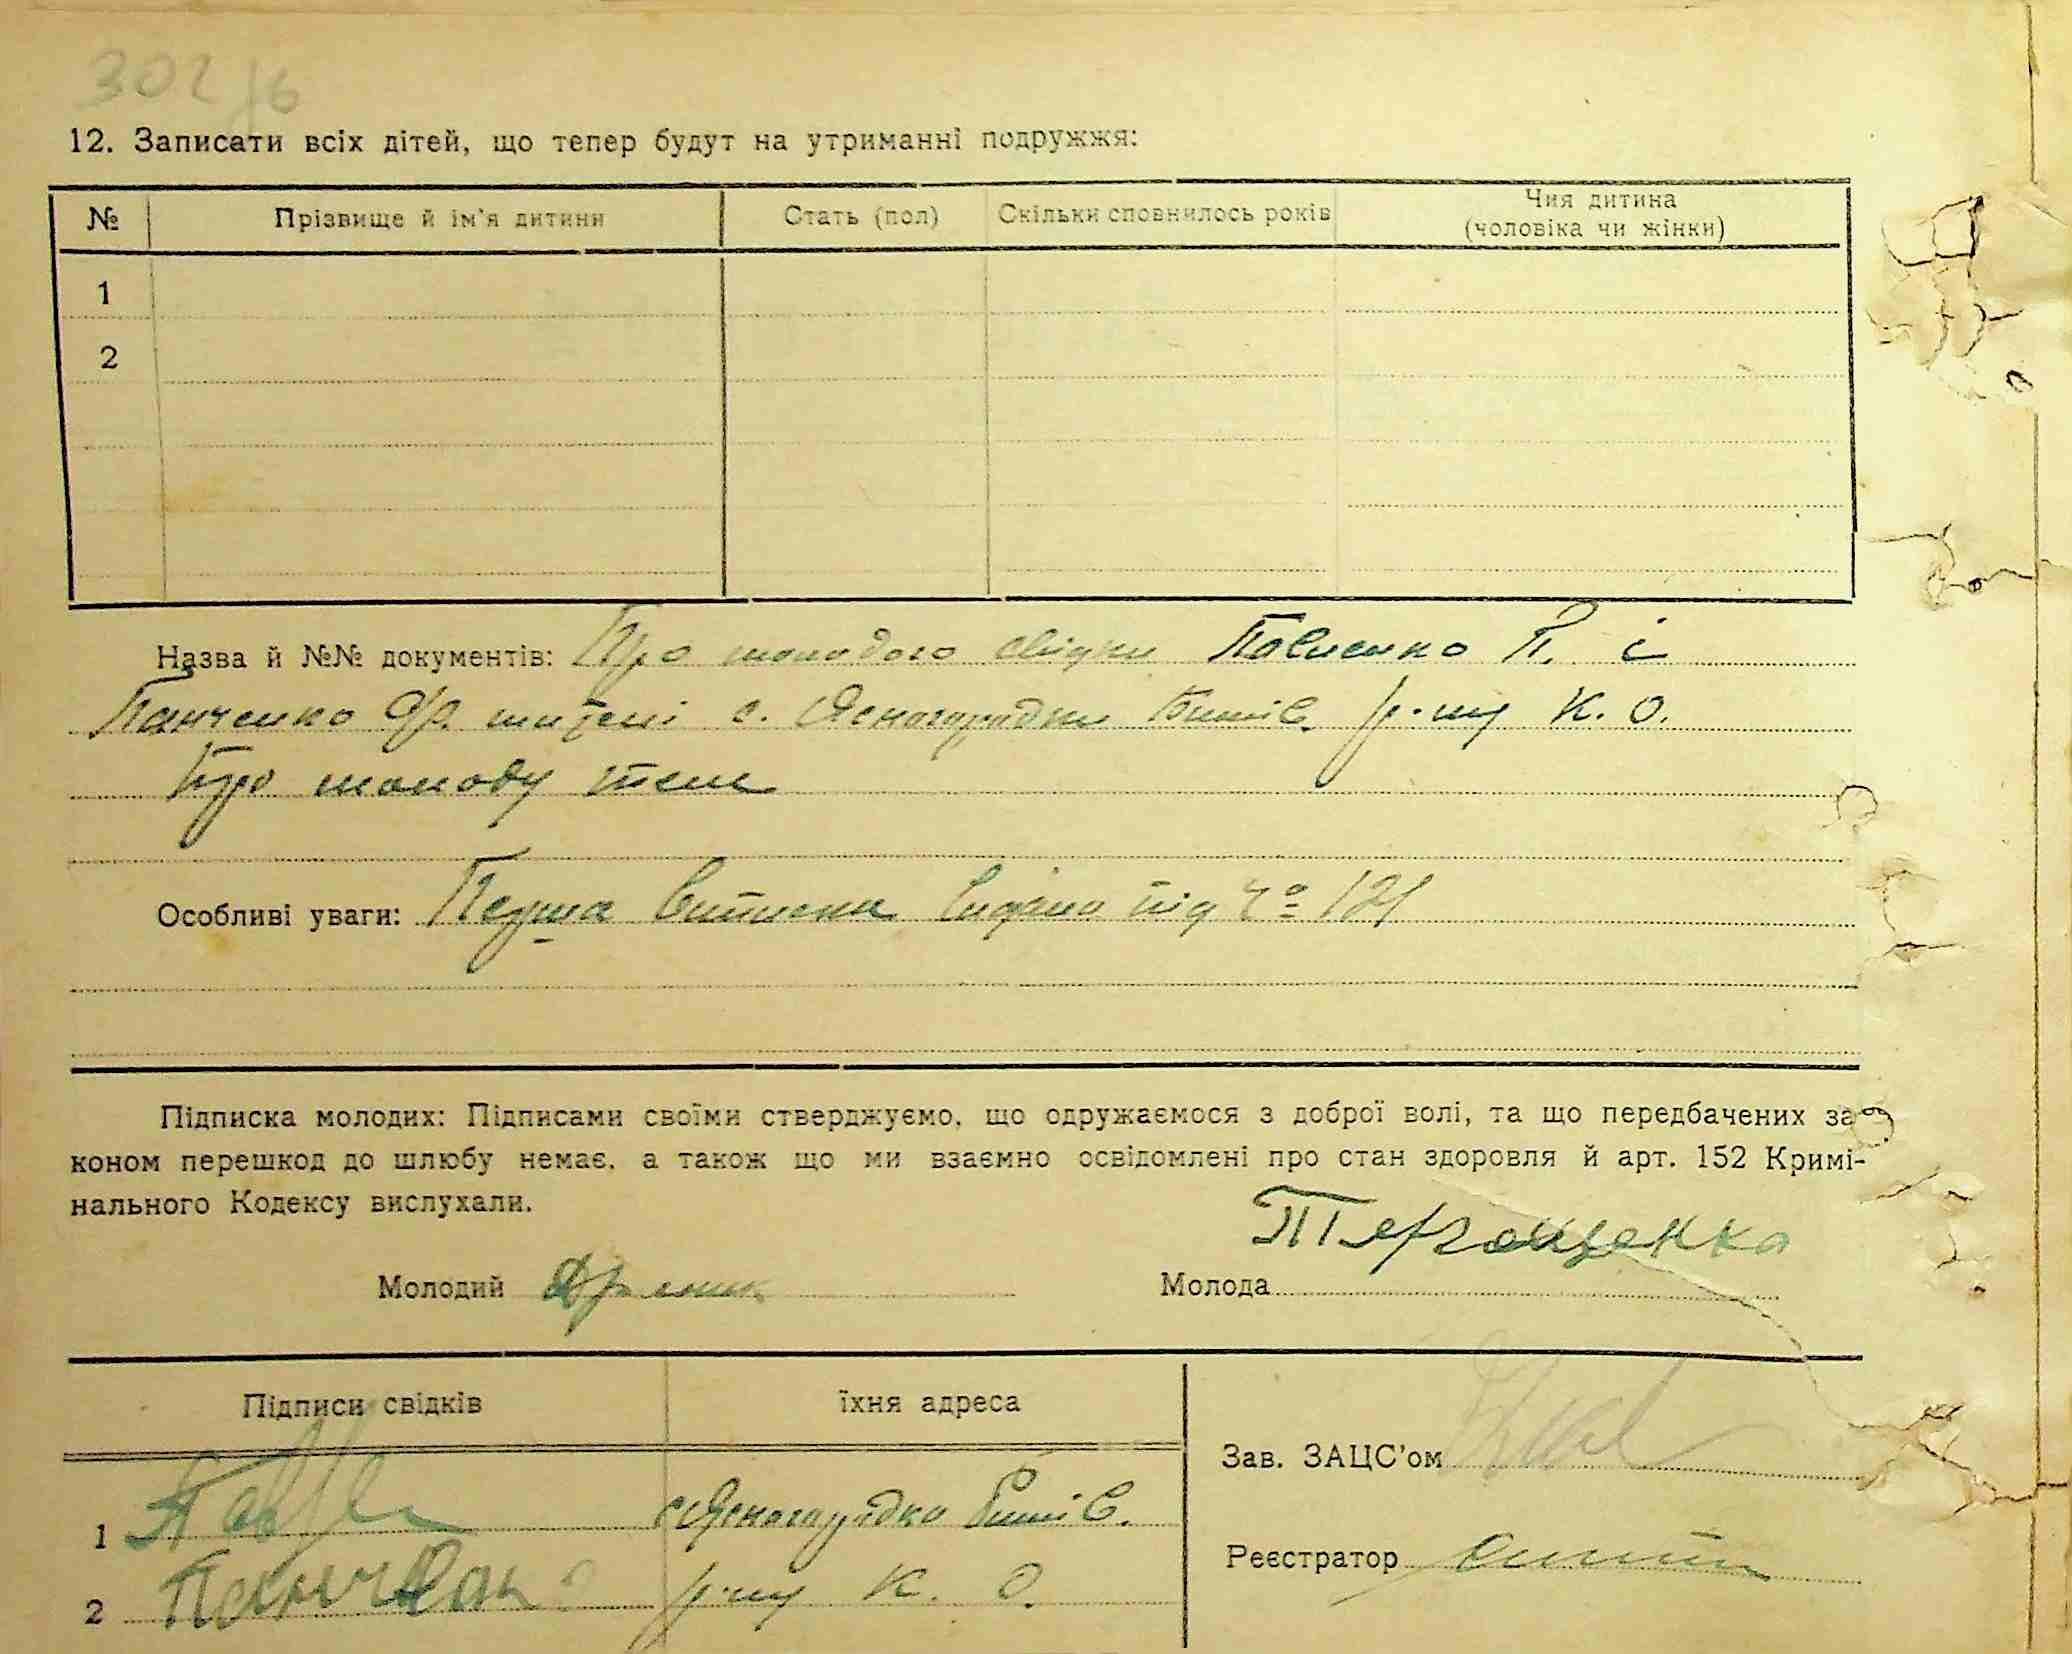 302/6
12. Записати всіх дітей, що тепер будут на утриманні подружжя:
№ Прізвище й ім'я дитини Стать (пол) Скільки сповнилось років Чия дитина (чоловіка чи жінки)
1
2
Назва й №№ документів: Про молодого свідки Павленко П. і
Панченко Ф. жителі с. Ясногородки Бишів. р-ну К. О.
Про молоду теж
Особливі уваги: Перша виписка видана під № 121
Підписка молодих: Підписами своїми стверджуємо, що одружаємося з доброї волі, та що передбачених за-
коном перешкод до шлюбу немає, а також що ми взаємно освідомлені про стан здоровля й арт. 152 Кримі-
нального Кодексу вислухали.
Молодий Молода
Підписи свідків їхня адреса
Зав. ЗАЦС'ом
1 с. Ясногородка Бишів.
Реєстратор
2 Панченко р-ну К. О.